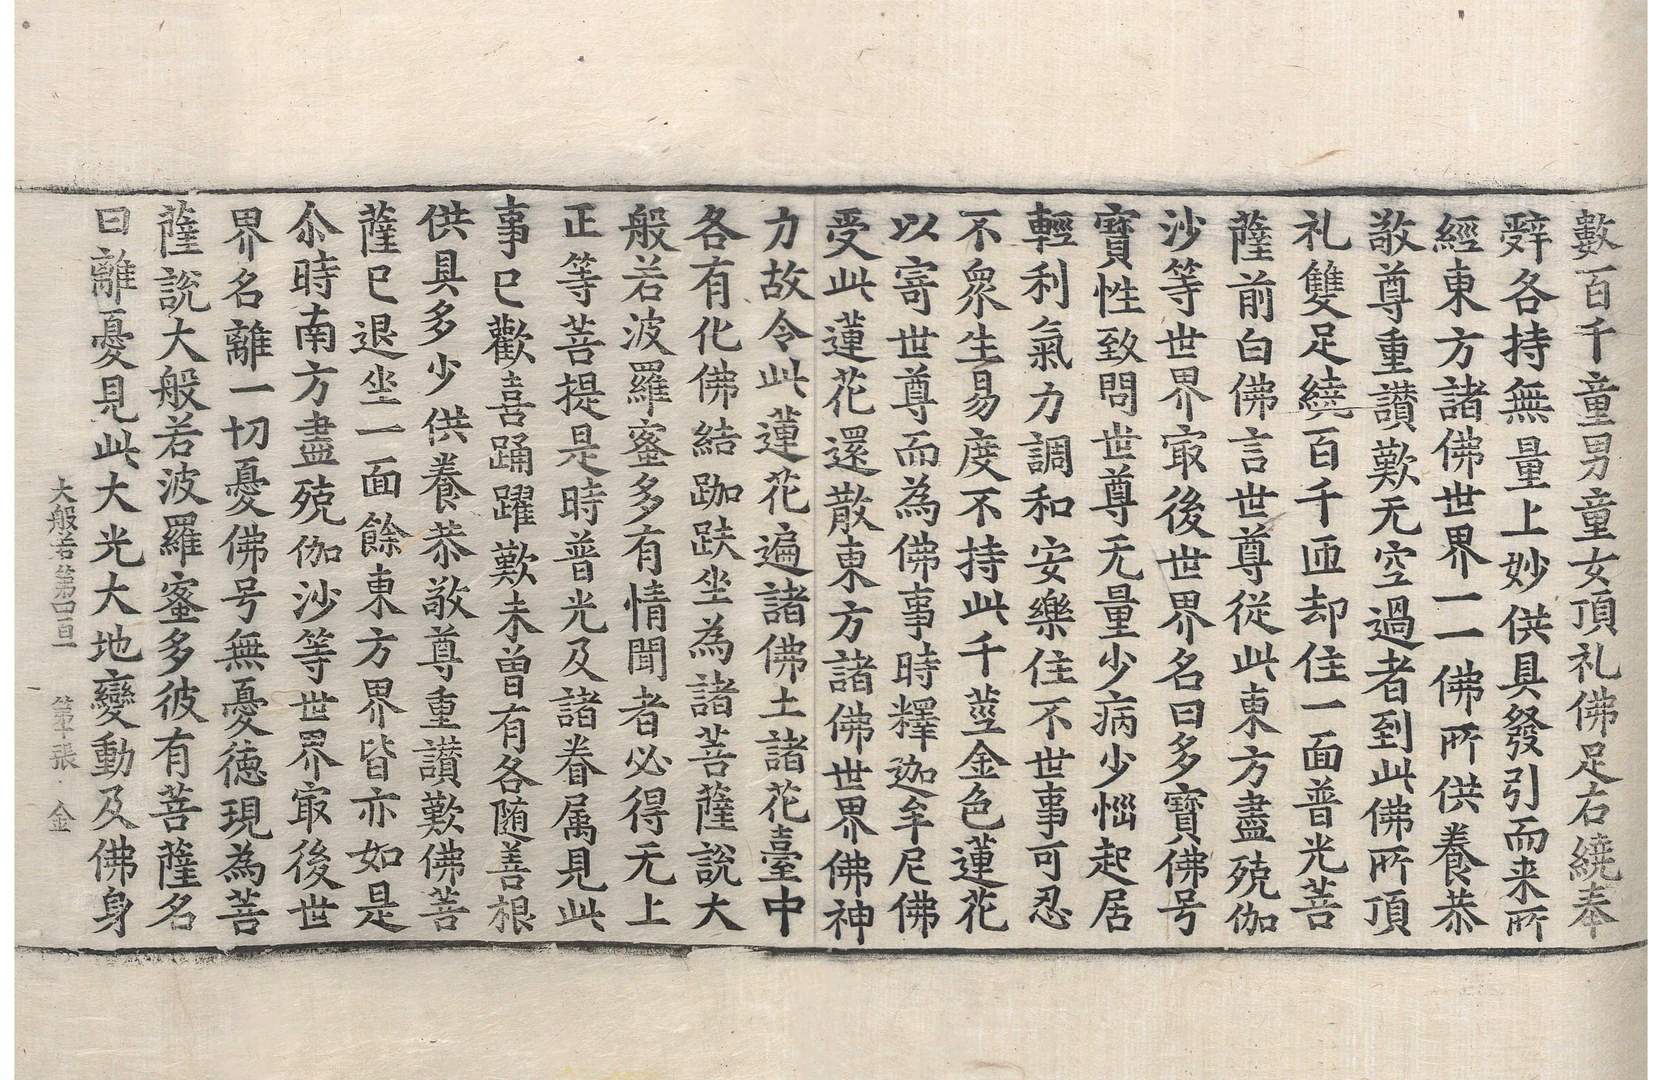 數百千童男童女頂礼佛足右繞奉
辤各持無量上妙供具發引而来所
經東方諸佛世界一一佛所供養恭
敬尊重讃歎无空過者到此佛所頂
礼雙足繞百千匝却住一面普光菩
薩前白佛言世尊從此東方盡殑伽
沙等世界㝡後世界名曰多寶佛号
寶性致問世尊无量少病少惱起居
輕利氣力調和安樂住不世事可忍
不衆生易度不持此千莖金色蓮花
以寄世尊而為佛事時釋迦牟尼佛
受此蓮花還散東方諸佛世界佛神
力故令此蓮花遍諸佛土諸花臺中
各有化佛結跏趺坐為諸菩薩說大
般若波羅蜜多有情聞者必得无上
正等菩提是時普光及諸眷属見此
事已歡喜踊躍歎未曾有各随善根
供具多少供養恭敬尊重讃歎佛菩
薩已退坐一面餘東方界皆亦如是
尒時南方盡殑伽沙等世界㝡後世
界名離一切憂佛号無憂德現為菩
薩說大般若波羅蜜多彼有菩薩名
曰離憂見此大光大地變動及佛身
大般若第四百一 第十張 金